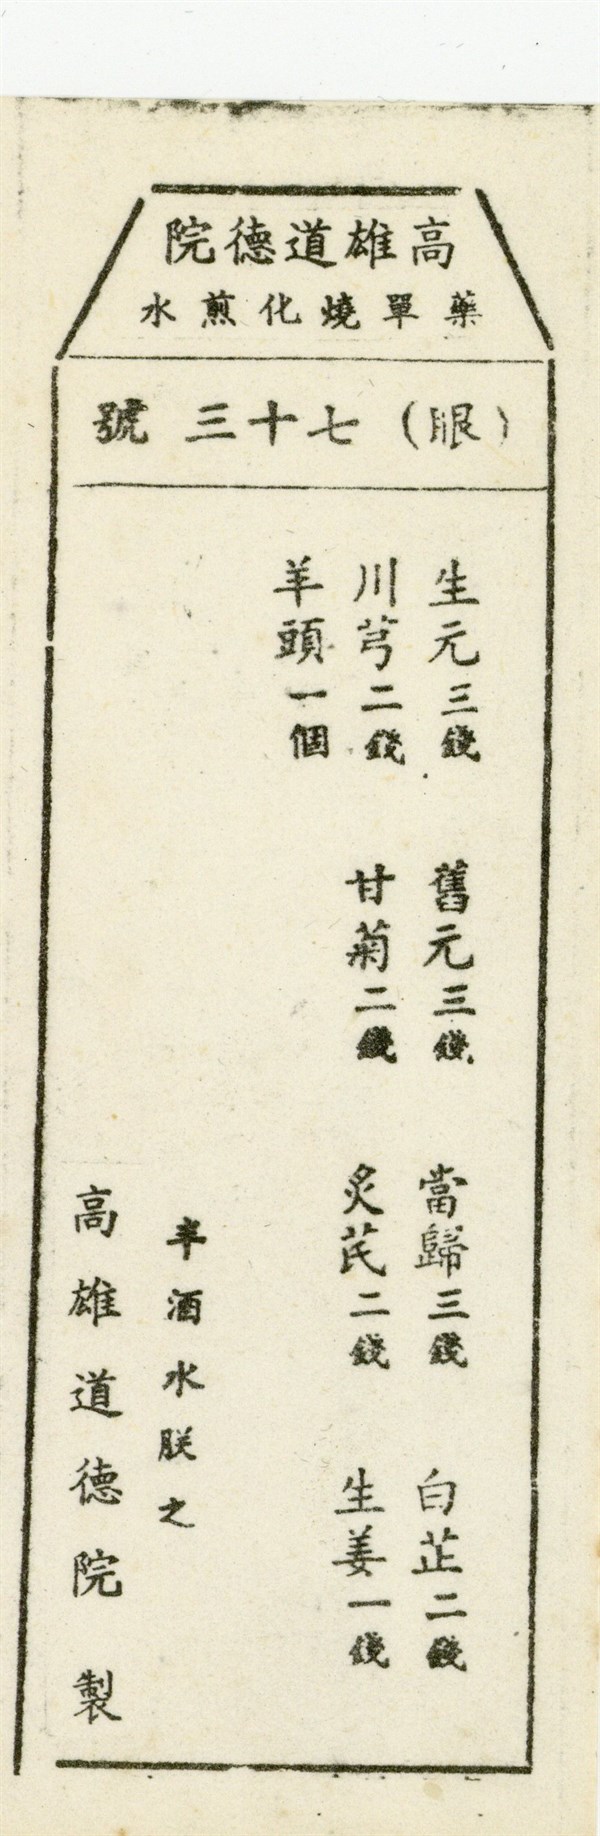 高雄道德院
藥單燒化煎水
(眼)七十三號
生元三錢 舊元三錢 當歸三錢 白芷二錢
川芎二錢 甘菊二錢 炙芪二錢 生姜一錢
羊頭一個
半酒水朕之
高雄道德院製